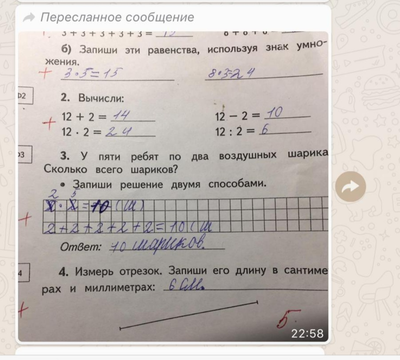 Пересланное сообщение
3 + 3 + 3 + 3 + 3 = 15
б) Запиши эти равенства, используя знак умно-
жения.
3·5=15 8·3=24
2. Вычисли:
12 + 2 = 14 12 − 2 = 10
12 · 2 = 24 12 : 2 = 6
3. У пяти ребят по два воздушных шарика
Сколько всего шариков?
• Запиши решение двумя способами.
2 · 5 = 10 (ш)
2+2+2+2+2=10 (ш
Ответ: 10 шариков.
4. Измерь отрезок. Запиши его длину в сантиме
рах и миллиметрах: 6 см.
5
22:58